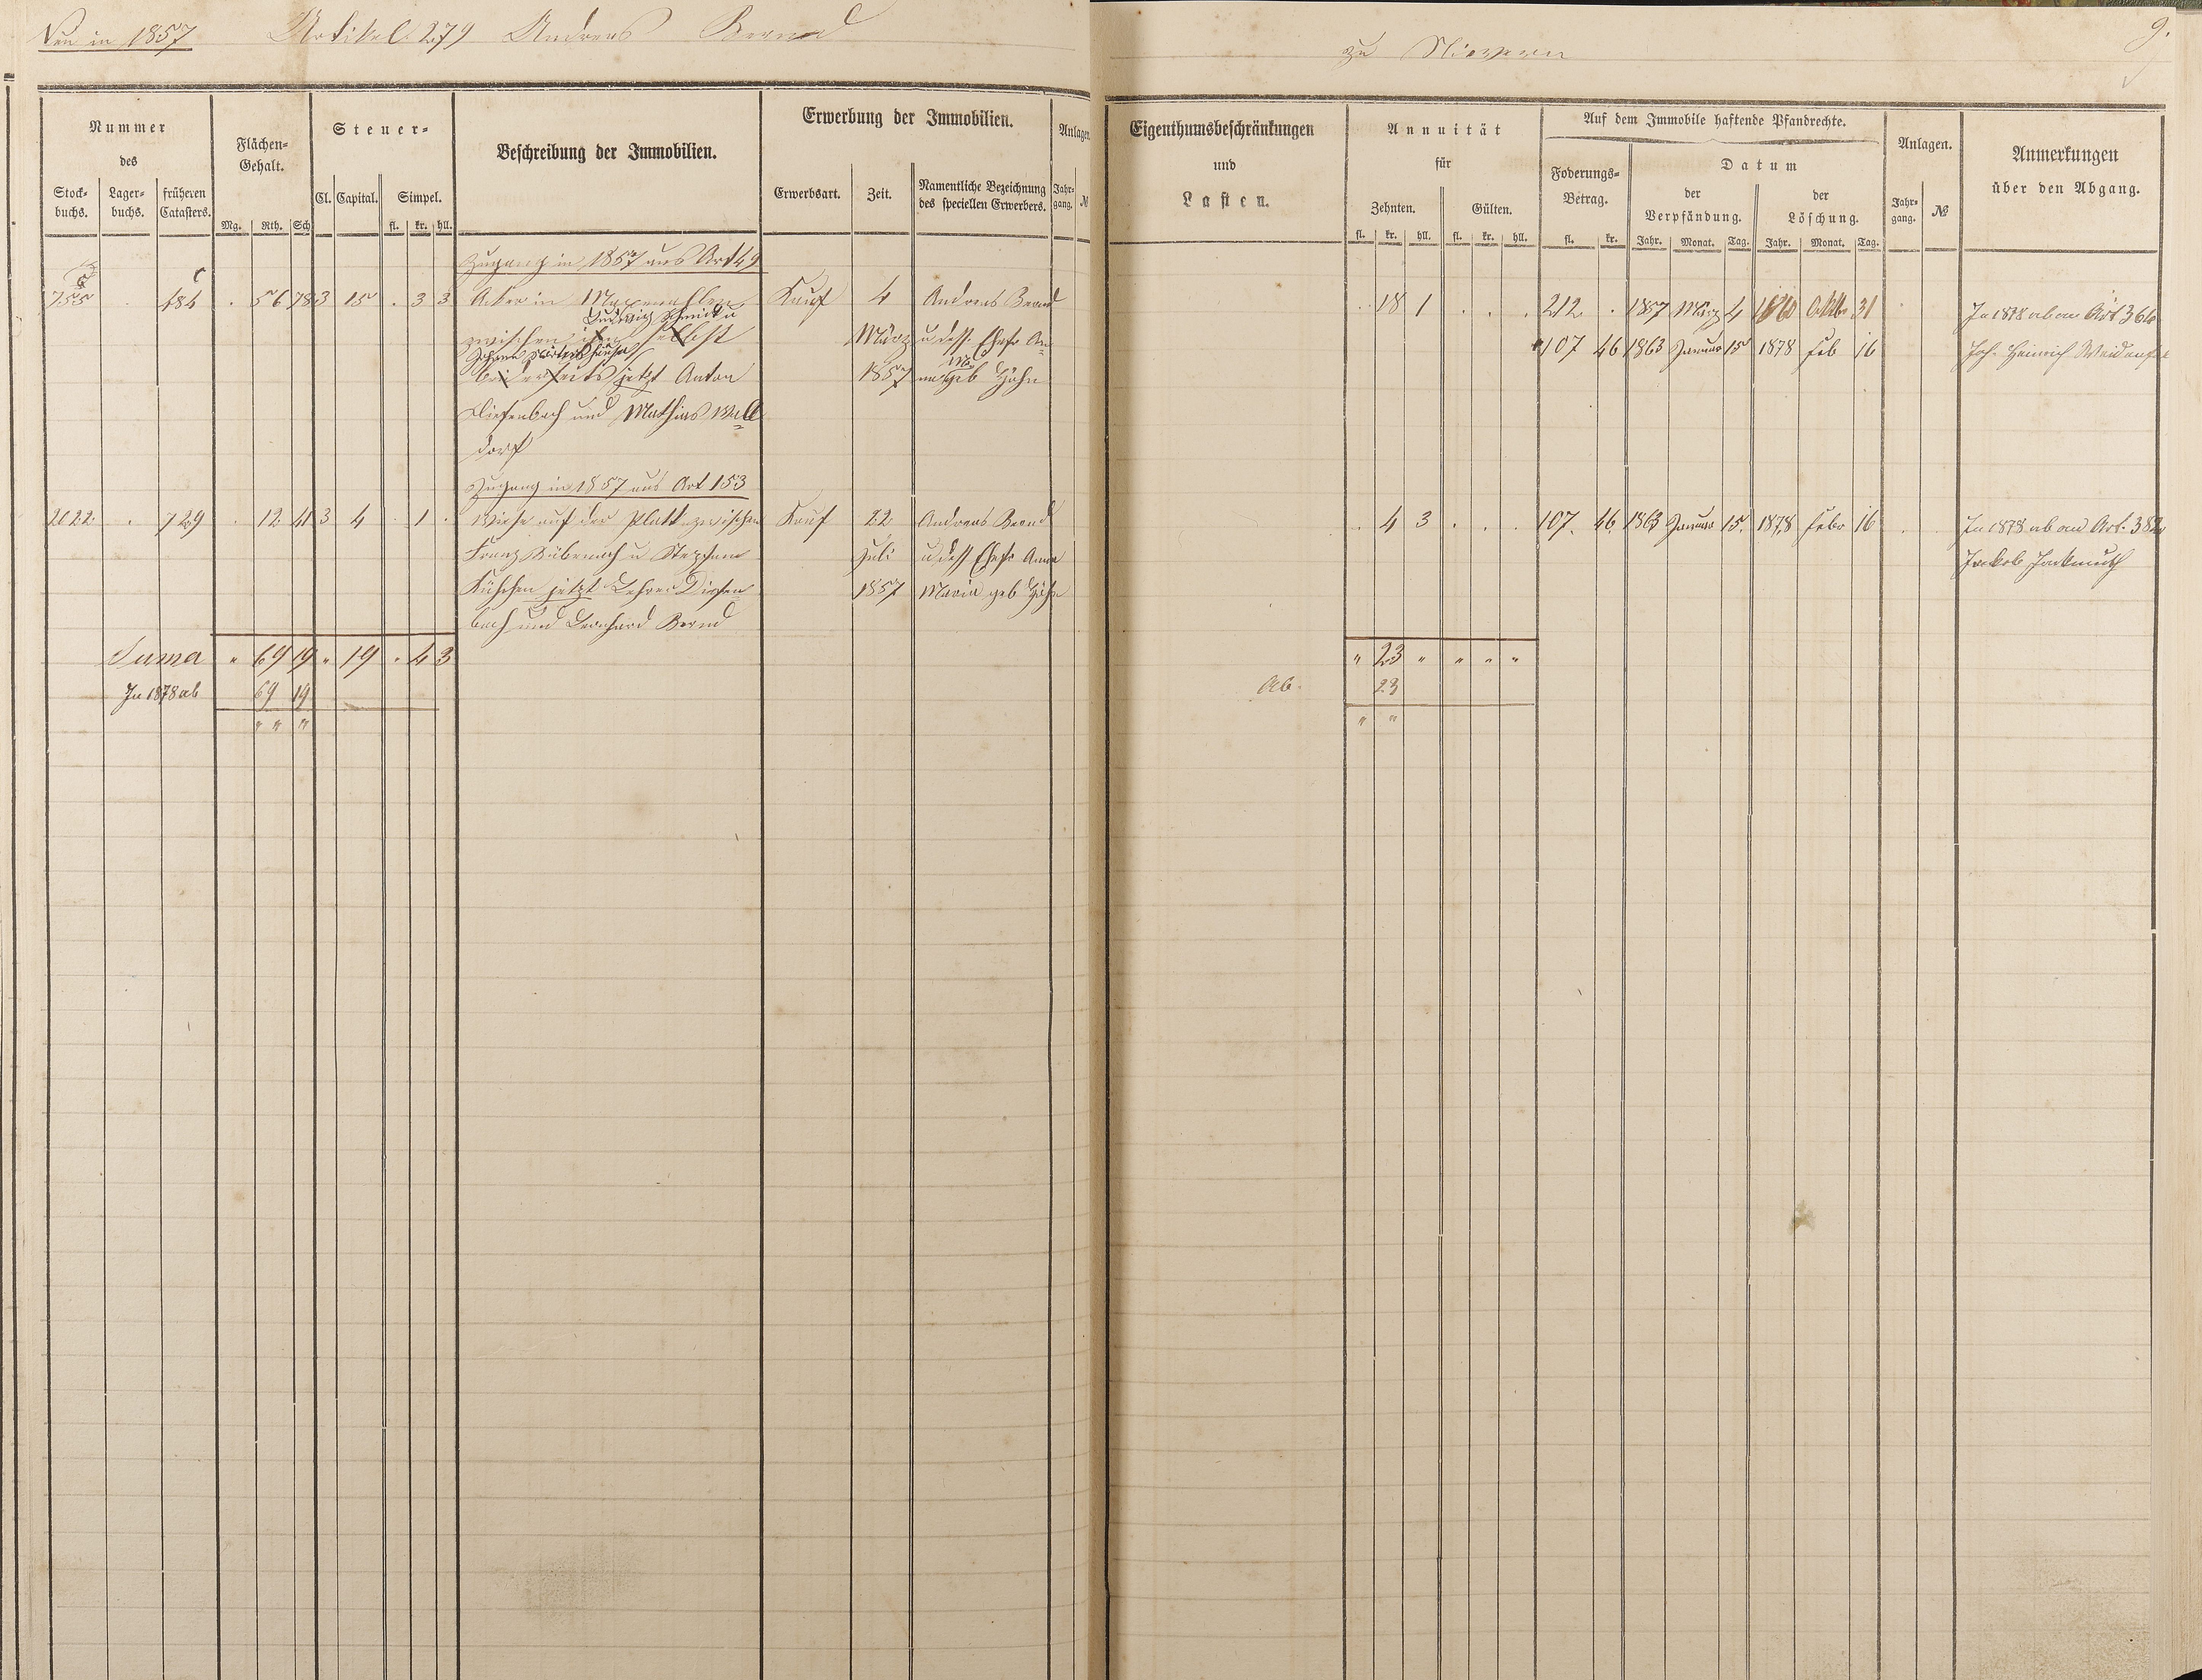 Neu in 1857 Artikel 279 Andreas Bernd
zu Nievern 9.
Nummer
des
Stock-
buchs.
Lager-
buchs.
früheren
Catasters.
Flächen-
Gehalt.
Mg. Rth. Sch
Steuer-
Cl. Capital. Simpel.
fl. kr. hll.
Beschreibung der Immobilien.
Erwerbung der Immobilien.
Erwerbsart. Zeit.
Namentliche Bezeichnung
des speciellen Erwerbers.
Anlagen
Jahr-
gang. №
Eigenthumsbeschränkungen
und
Lasten.
Annuität
für
Zehnten. Gülten.
fl. kr. hll. fl. kr. hll.
Auf dem Immobile haftende Pfandrechte.
Foderungs-
Betrag.
fl. kr.
Datum
der
Verpfändung.
Jahr. Monat. Tag.
der
Löschung.
Jahr. Monat. Tag.
Anlagen.
Jahr-
gang. №
Anmerkungen
über den Abgang.
Zugang in 1857 aus Art 49
755 484 . 56 78 3 15 . 3 3 Acker in Kauf 4 Andreas Bernd . 18 1 . . . 212 . 1857 März 4 1860 Oktbr 31 In 1878 ab an Art 366
Ludwig Schmidt u
zwischen selbst März u dess. Ehefr An- 107 46 1863 Januar 15 1878 Feb 16 Joh. Heinrich
beiderseits jetzt Anton 1857 na Ma geb Höhn
Diefenbach und Mathias Mall-
dorf
Zugang in 1857 aus Art 153
2622 . 729 . 12 41 3 4 . 1 . Wiese auf der Platt zwischen Kauf 22 Andreas Bernd . 4 3 . . . 107. 46. 1863 Januar 15. 1878 Febr 16 In 1878 ab an Art. 382
Franz Kübenach u Stephan Juli u dess Ehefr Anna Jakob
jetzt Lehrer Diefen- 1857 Maria geb Höhn
bach und Leonhard Bernd
Suma " 69 19 " 19 " 4 3 " 23 " " " "
In 1878 ab 69 19 Ab. 23
" " " " "